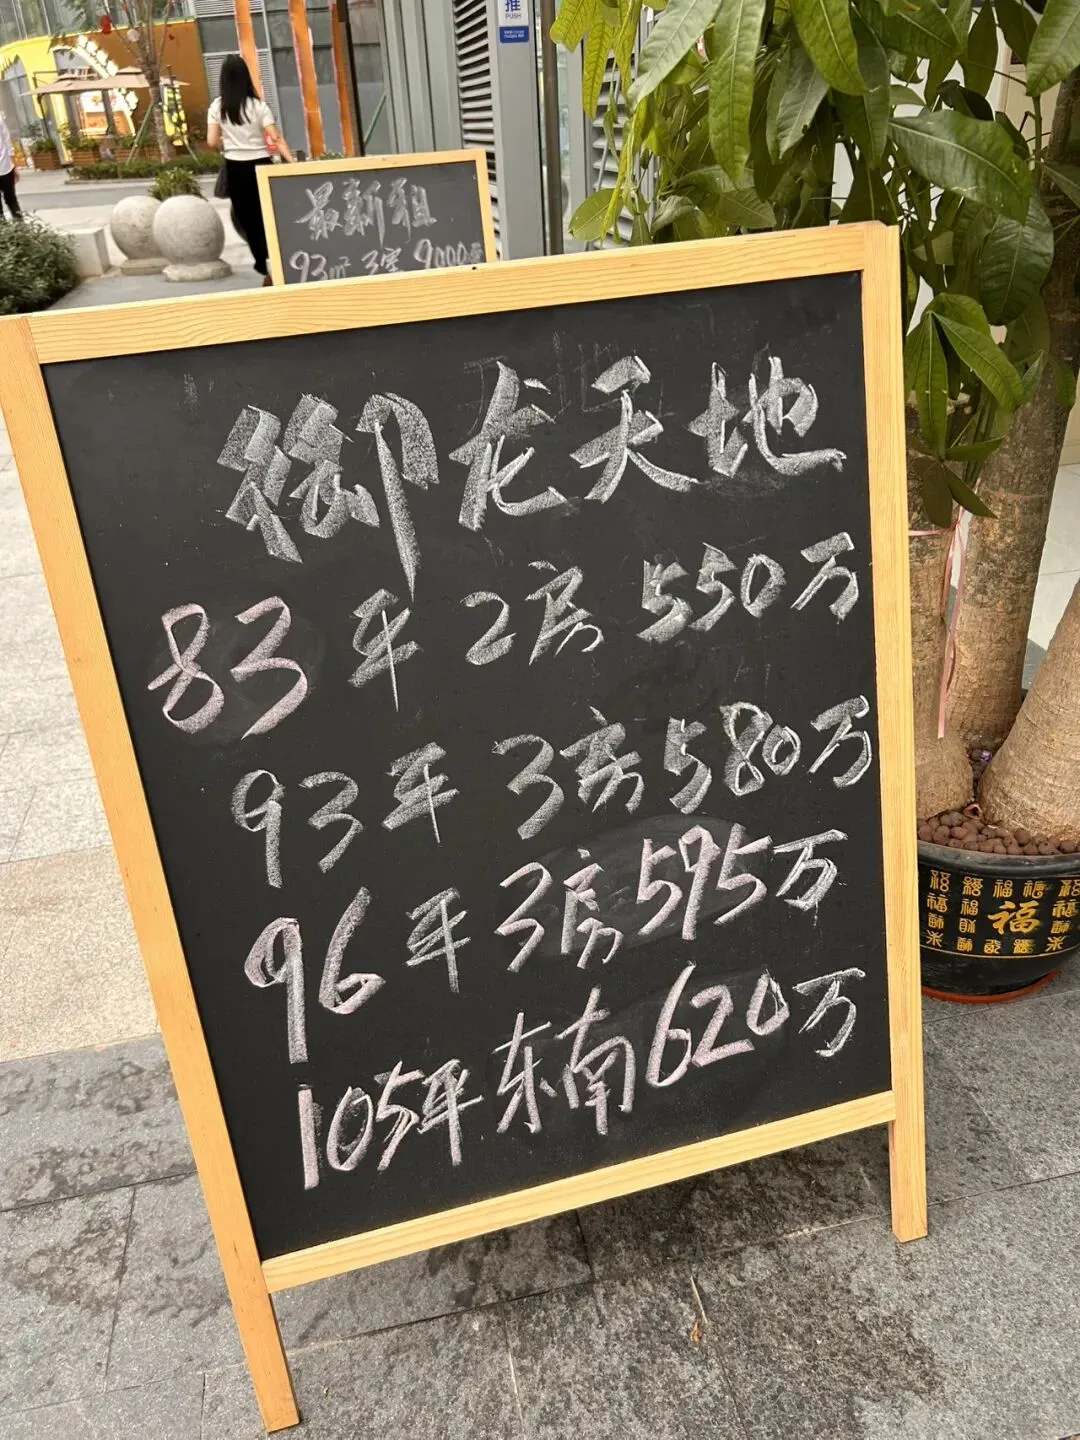 推
PUSH
最新租
93㎡ 3室 9000元
御龙天地
83平 2房 550万
93平 3房 580万
96平 3房 595万
105平 东南 620万
福